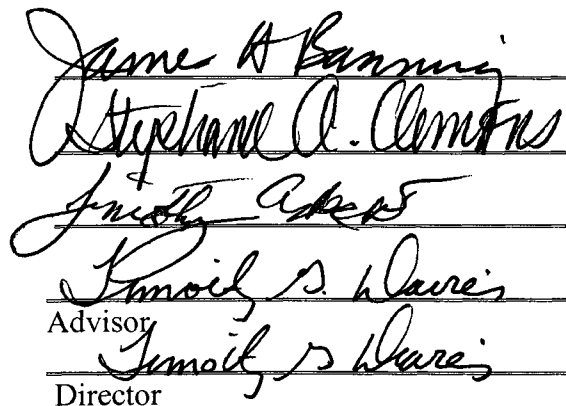 James H Banning
Stephanie A. Clemons
Timothy
Timothy G. Davies
Advisor
Timothy G Davies
Director